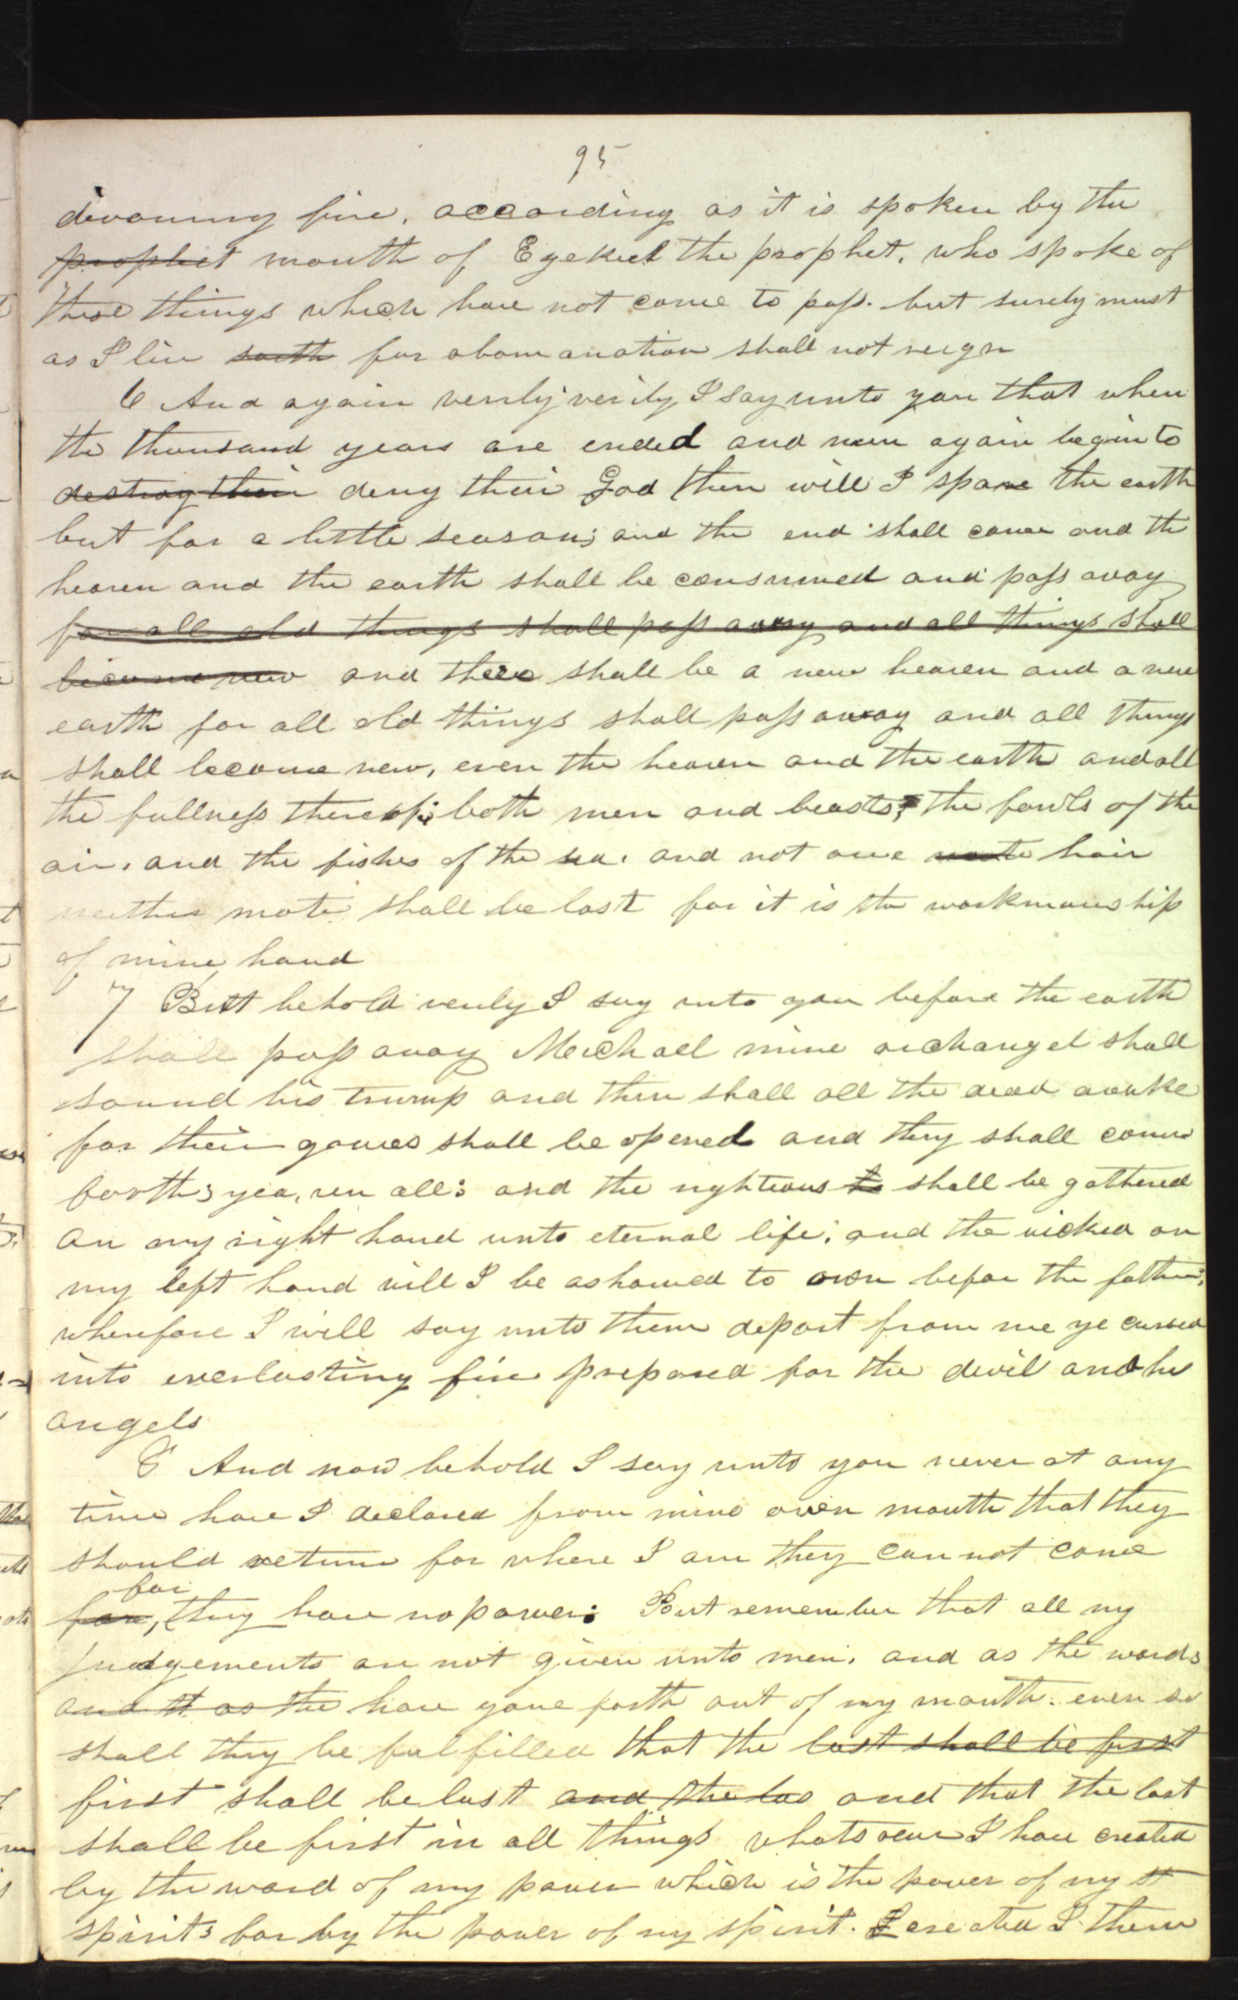 95
devouring fire, according as it is spoken by the
prophet mouth of Ezekiel the prophet, who spoke of
these things which have not come to pass. but surely must
as I live saith for abomanation shall not reign
6 And again verily verily I say unto you that when
the thousand years are ended and men again begin to
destroy their deny their God then will I spare the earth
but for a little season; and the end shall come and the
heaven and the earth shall be consumed and pass away
for all old things shall pass away and all things shall
become new and there shall be a new heaven and a new
earth for all old things shall pass away and all things
shall become new, even the heaven and the earth and all
the fullness thereof; both men and beasts, the fowls of the
air, and the fishes of the sea, and not one mote hair
neither mote shall be lost for it is the workmanship
of mine hand
7 But behold verily I say unto you before the earth
shall pass away Meichael mine archangel shall
sound his trump and then shall all the dead awake
for their graves shall be opened and they shall come
forth; yea, even all: and the righteous to shall be gathered
on my right hand unto eternal life; and the wicked on
my left hand will I be ashamed to own before the father;
wherefore I will say unto them depart from me ye cursed
into everlasting fire prepared for the devil and his
angels
8 And now behold I say unto you never at any
time have I declared from mine own mouth that they
should return for where I am they can not come
for
for, they have no power: But remember that all my
judgements are not given unto men, and as the words
and it as the have gone forth out of my mouth. even so
shall they be fulfilled that the last shall be first
first shall be last and the las and that the last
shall be first in all things whatsoever I have created
by the word of my power which is the power of my st
spirit; for by the power of my spirit. I created I them